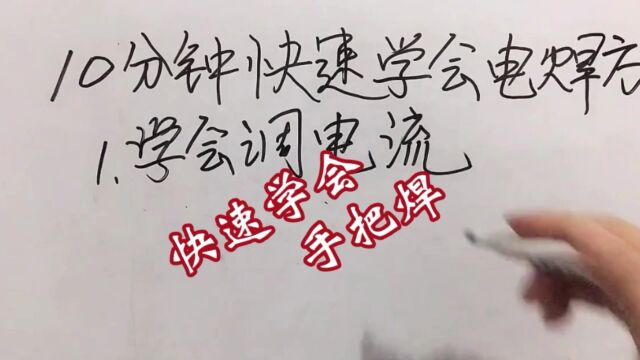 10分钟快速学会电焊方
1.学会调电流
快速学会
手把焊